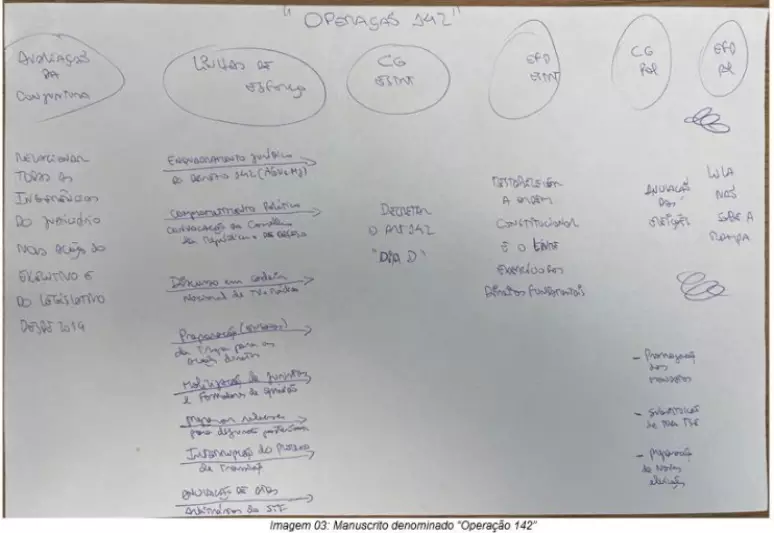 "OPERAÇÃO 142"
AVALIAÇÃO
DA
CONJUNTURA
LINHAS DE
ESFORÇO
CG
ESTRT
EFD
ESTRT
CG
POL
EFD
POL
RELACIONAR
TODAS AS
INTERFERÊNCIAS
DO JUDICIÁRIO
NAS AÇÃO DO
EXECUTIVO E
DO LEGISLATIVO
DESDE 2019
ENQUADRAMENTO JURÍDICO
DO DECRETO 142 (AGU e MJ)
Comprometimento Político
CONVOCAÇÃO do Conselho
da República e DE DEFESA
Discurso em cadeia
Nacional de TV e Rádio
Preparação
da tropa para as
ações diretas
Mobilização de juristas
e formadores de opinião
para
Interrupção do Processo
de Transição
ANULAÇÃO DE ATOS
Arbitrários do STF
DECRETAR
O ART 142
"DIA D"
RESTABELECER
A ORDEM
CONSTITUCIONAL
E O LIVRE
EXERCÍCIO DOS
DIREITOS FUNDAMENTAIS
ANULAÇÃO
DAS
ELEIÇÕES
LULA
NÃO
SOBE A
RAMPA
- Prorrogação
dos
mandatos
- SUBSTITUIÇÃO
de TODO TSE
- PREPARAÇÃO
de Novas
eleições
Imagem 03: Manuscrito denominado "Operação 142"